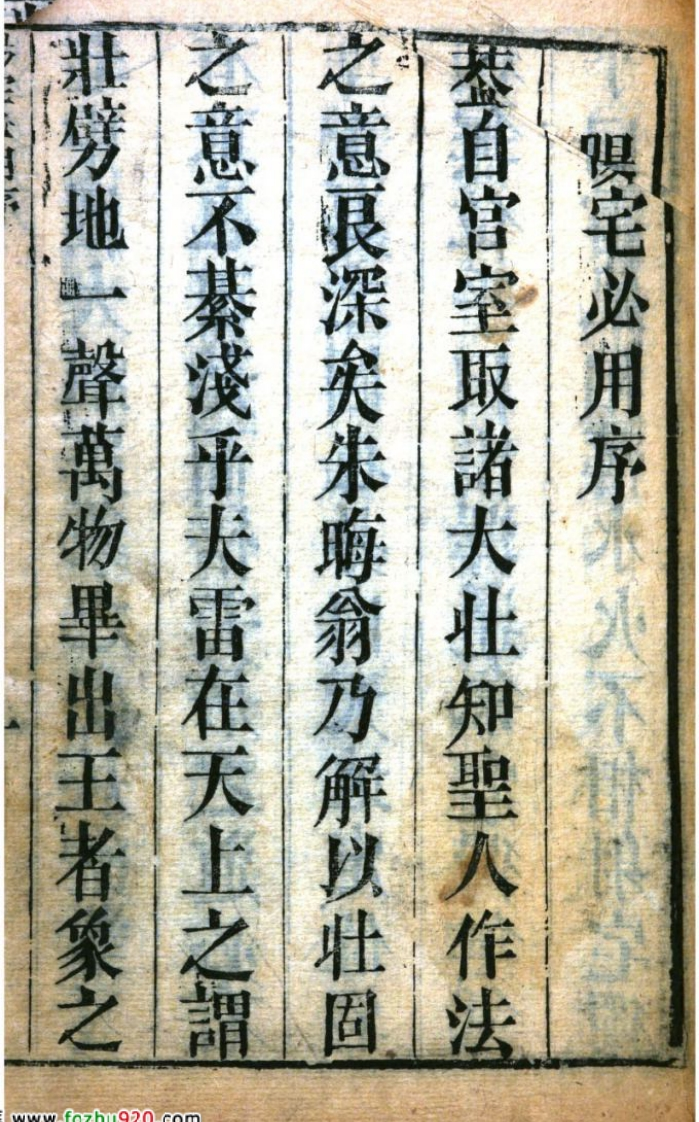 陽宅必用序
葢自宫室取諸大壮知聖人作法
之意良深矣朱晦翁乃解以壮固
之意不綦淺乎夫雷在天上之謂
壯劈地一聲萬物畢出王者象之
www.fozhu920.com